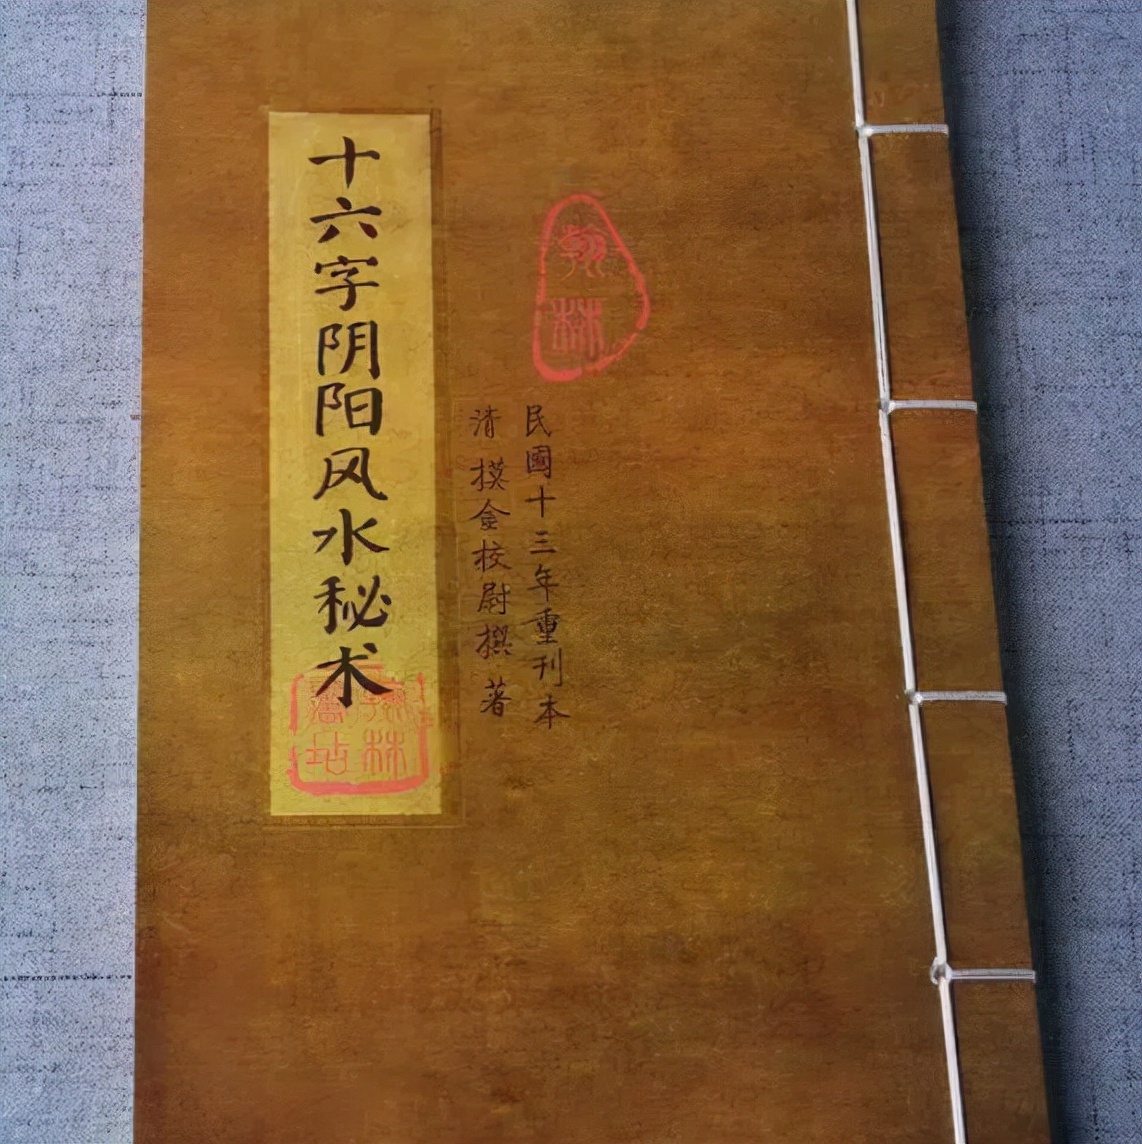 民國十三年重刊本
清 摸金校尉撰 著
十六字阴阳风水秘术
翰林